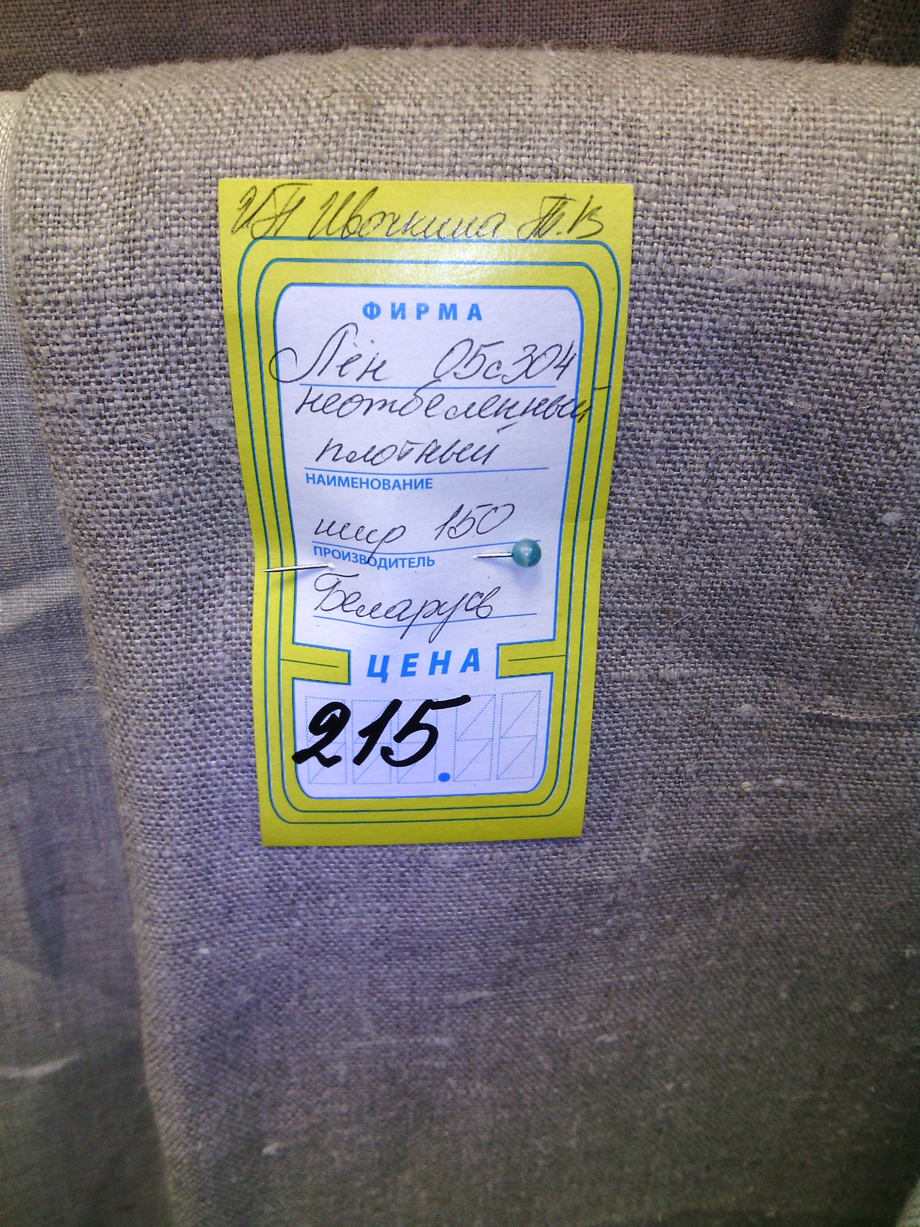 ИП Ивочкина Т.В
ФИРМА
Лён 05с304
неотбеленный
плотный
НАИМЕНОВАНИЕ
шир 150
ПРОИЗВОДИТЕЛЬ
Беларусь
ЦЕНА
215.